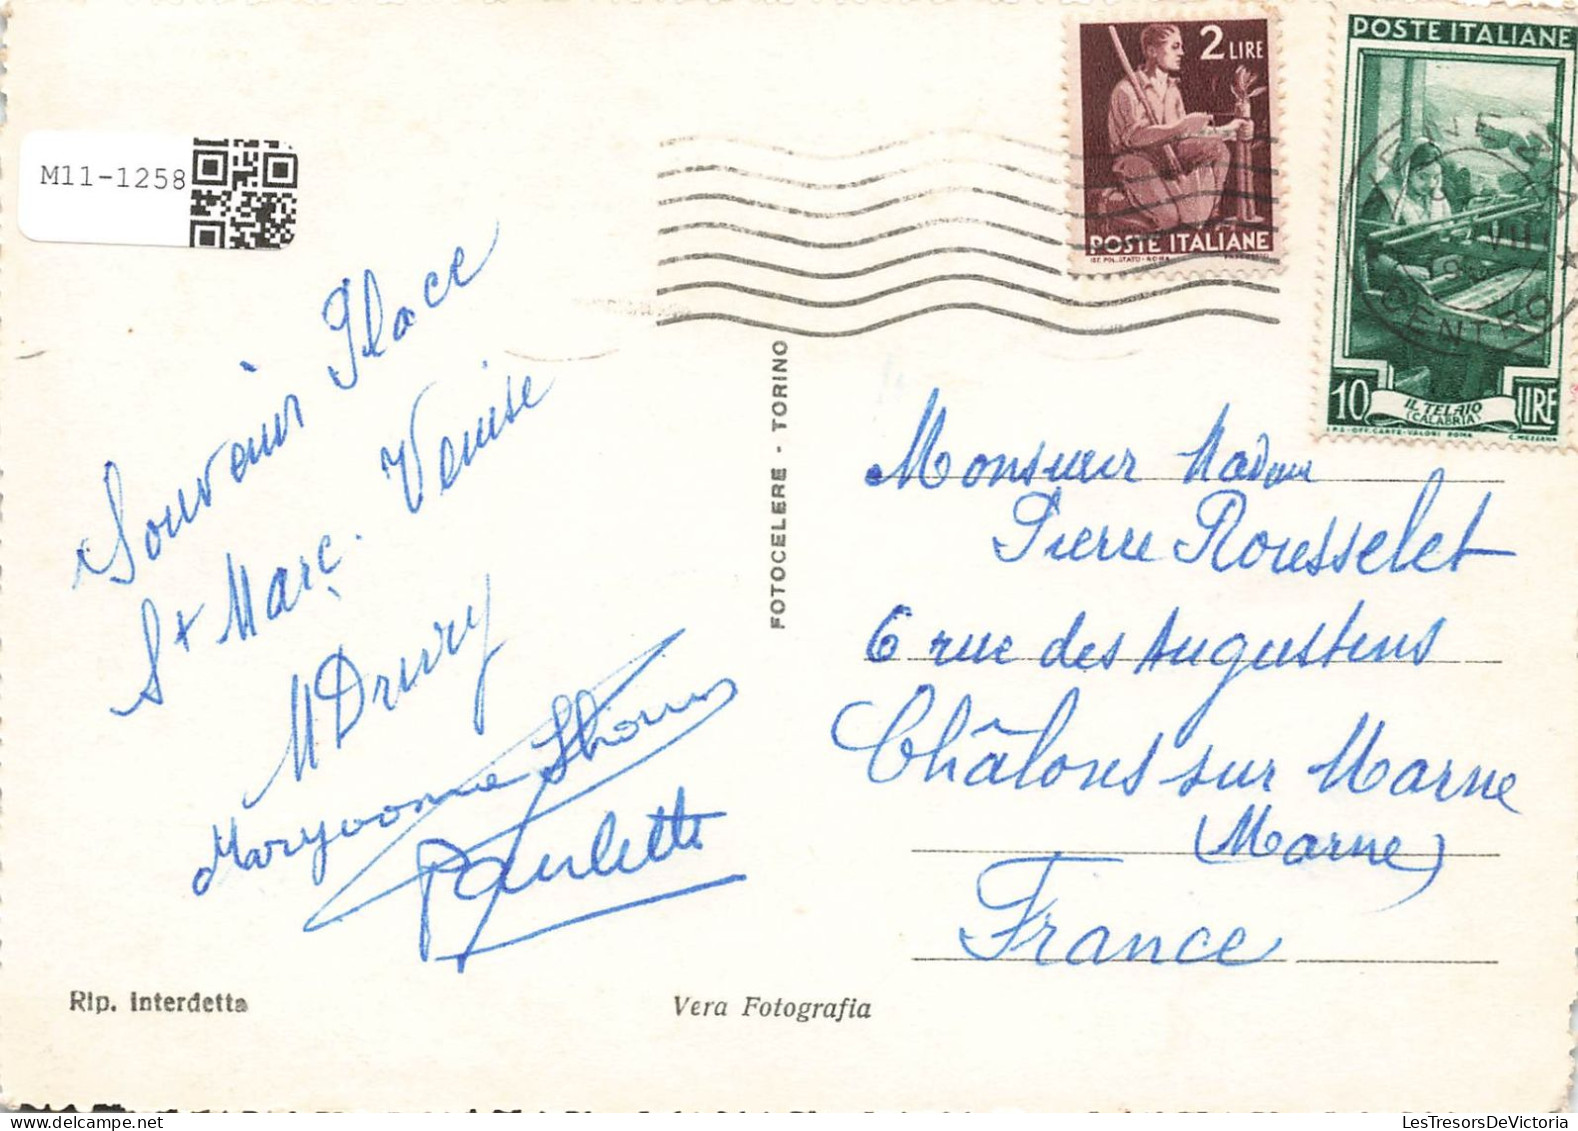 M11-1258
2 LIRE
POSTE ITALIANE
IST. POL. STATO - ROMA
POSTE ITALIANE
10 LIRE
IL TELAIO
(CALABRIA)
I.P.S.-OFF. CARTE-VALORI ROMA
C. MEZZANA
VENEZIA
CENTRO
VII
Souvenir Place
St Marc. Venise
M Drury
Maryvonne
Paulette
FOTOCELERE - TORINO
Monsieur Madame
Pierre Rousselet
6 rue des Augustins
Châlons sur Marne
(Marne)
France
Rip. Interdetta
Vera Fotografia
LesTresorsDeVictoria